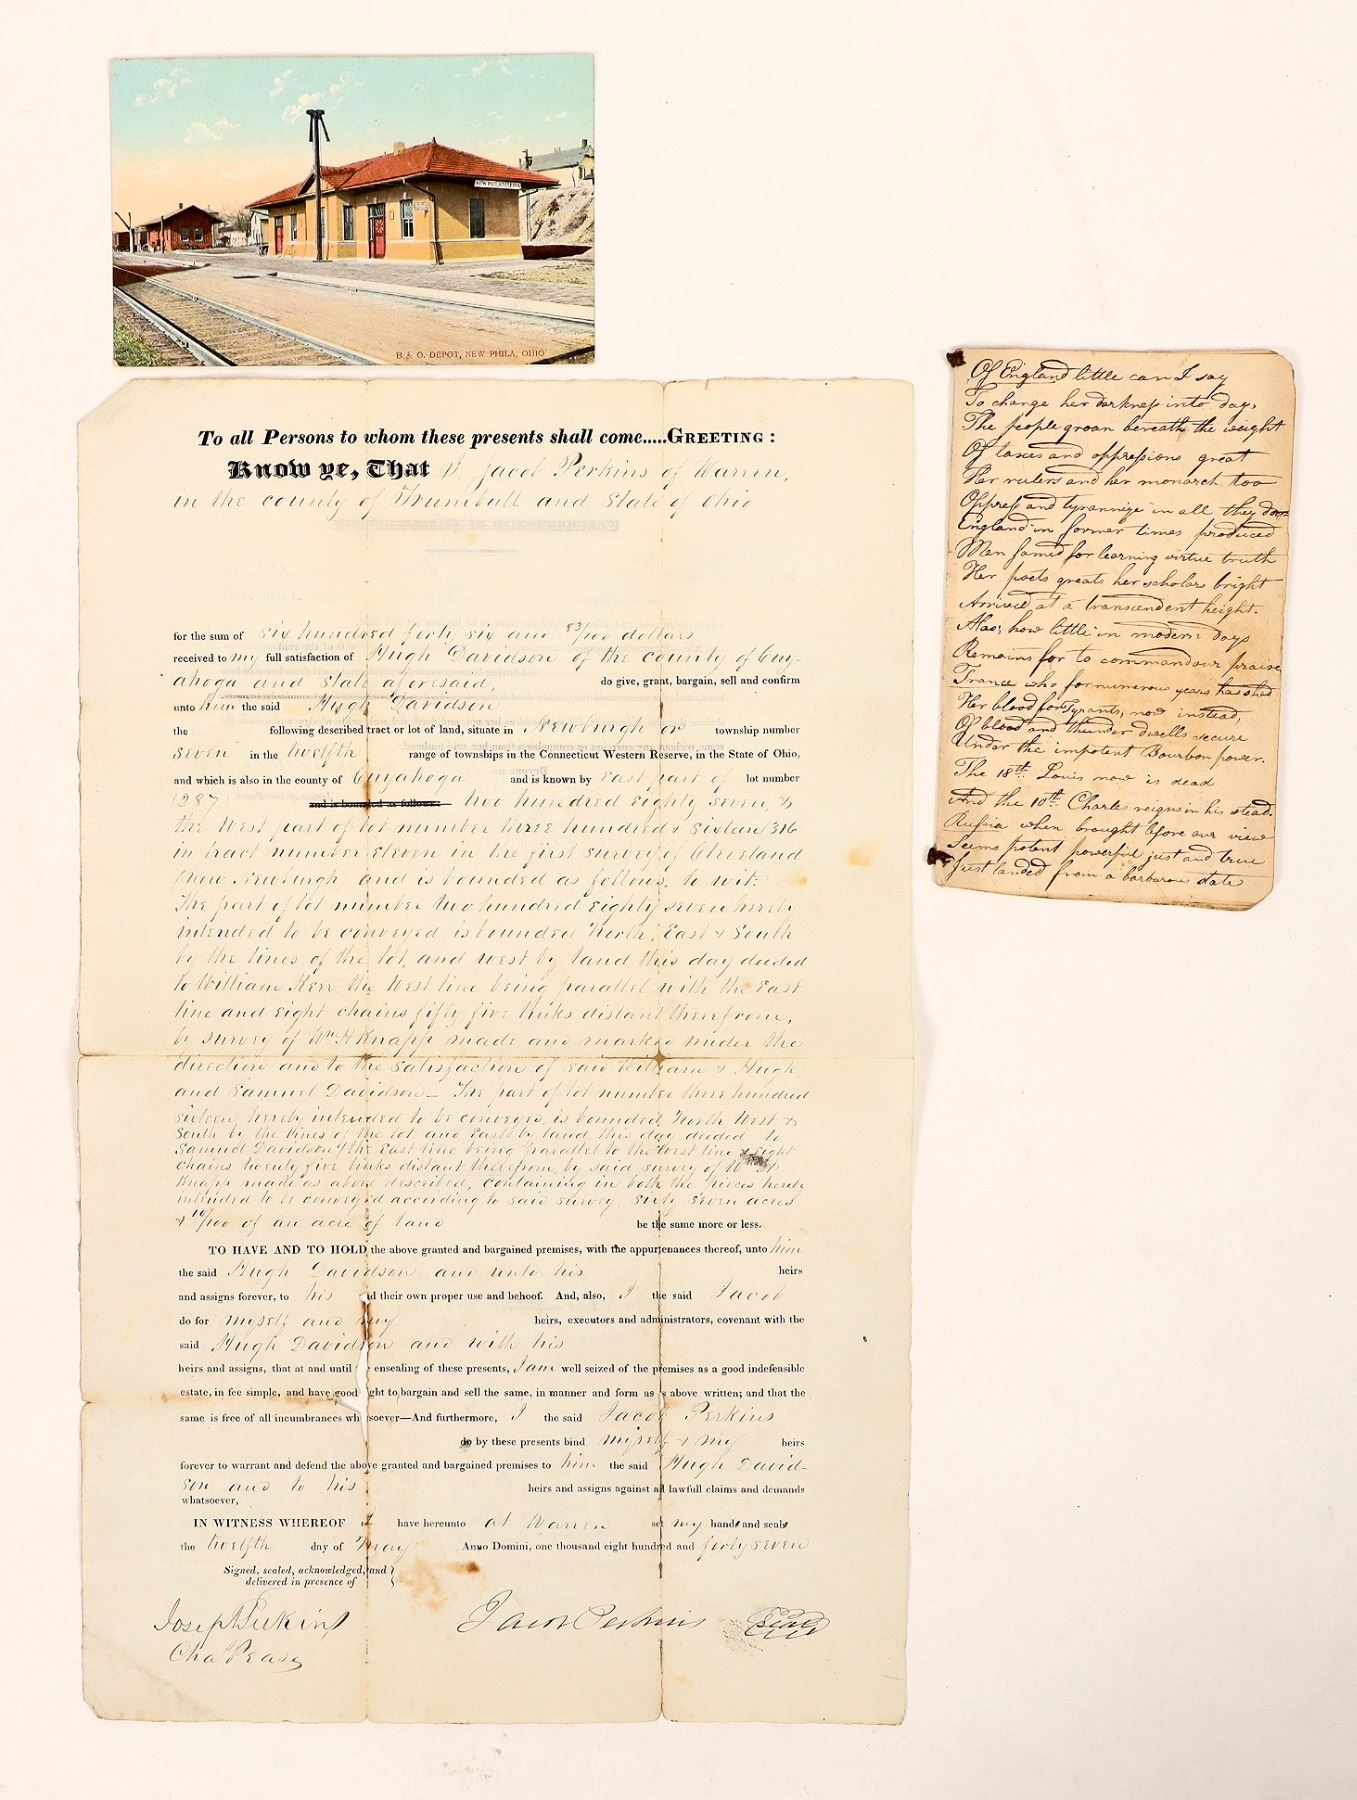 NEW PHILADELPHIA
B. & O. DEPOT, NEW PHILA, OHIO
To all Persons to whom these presents shall come.....GREETING:
Know ye, That I, Jacob Perkins of Warren,
in the county of Trumbull and State of Ohio
for the sum of six hundred forty six and 83/100 dollars
received to my full satisfaction of Hugh Davidson of the county of Cuy-
ahoga and State aforesaid, do give, grant, bargain, sell and confirm
unto him the said Hugh Davidson
the following described tract or lot of land, situate in Newburgh or township number
seven in the twelfth range of townships in the Connecticut Western Reserve, in the State of Ohio,
and which is also in the county of Cuyahoga and is known by East part of lot number
(287) and is bounded as follows: two hundred eighty seven, &
the West part of lot number three hundred & sixteen 316
in tract number eleven in the first survey of Cleveland
(now Newburgh and is bounded as follows, to wit:
The part of lot number two hundred eighty seven hereby
intended to be conveyed, is bounded North, East & South
by the lines of the lot, and west by land this day deeded
to William Kerr, the West line being parallel with the East
line and eight chains fifty five links distant therefrom,
by survey of Wm H Knapp made and marked under the
direction and to the satisfaction of said William & Hugh,
and Samuel Davidson— The part of lot number three hundred
sixteen, hereby intended to be conveyed, is bounded North West &
South by the lines of the lot, and East by land this day deeded to
Samuel Davidson, the East line being parallel to the West line & eight
chains twenty five links distant therefrom, by said survey of Wm H
Knapp made as above described, containing in both the pieces hereby
intended to be conveyed according to said survey, sixty seven acres
& 10/100 of an acre of land be the same more or less.
TO HAVE AND TO HOLD the above granted and bargained premises, with the appurtenances thereof, unto him
the said Hugh Davidson and unto his heirs
and assigns forever, to his and their own proper use and behoof. And, also, I the said Jacob
do for myself and my heirs, executors and administrators, covenant with the
said Hugh Davidson and with his
heirs and assigns, that at and until the ensealing of these presents, I am well seized of the premises as a good indefeasible
estate, in fee simple, and have good right to bargain and sell the same, in manner and form as is above written; and that the
same is free of all incumbrances whatsoever—And furthermore, I the said Jacob Perkins
do by these presents bind myself & my heirs
forever to warrant and defend the above granted and bargained premises to him the said Hugh David-
son and to his heirs and assigns against all lawfull claims and demands
whatsoever,
IN WITNESS WHEREOF I have hereunto at Warren set my hand and seal
the twelfth day of May Anno Domini, one thousand eight hundred and forty seven
Signed, sealed, acknowledged, and
delivered in presence of
Joseph Perkins Jacob Perkins Seal
Chas Pease
Of England little can I say
To change her darkness into day,
The people groan beneath the weight
Of taxes and oppressions great
Her rulers and her monarch too
Oppress and tyrannize in all they do
England in former times produced
Men famed for learning virtue truth
Her poets greats her scholars bright
Arrived at a transcendent height.
Alas; how little in modern days
Remains for to command our praise
France who for numerous years has shed
Her blood for Tyrants, now instead,
Of blood and thunder dwells secure
Under the impotent Bourbon power.
The 18th Louis now is dead
And the 10th Charles reigns in his stead.
Russia when brought before our view
Seems potent powerful just and true
Just landed from a barbarous state